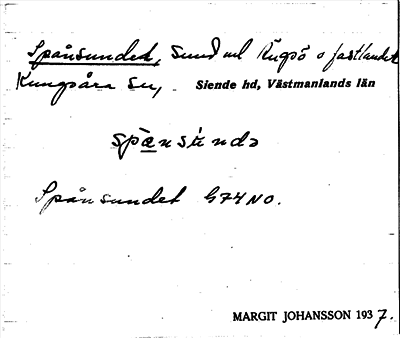 Spånsundet, Sund ml Kugsö o fastlandet
Kungsåra sn, Siende hd, Västmanlands län
spæ̀nsúndə
Spånsundet G74NO.
MARGIT JOHANSSON 1937.